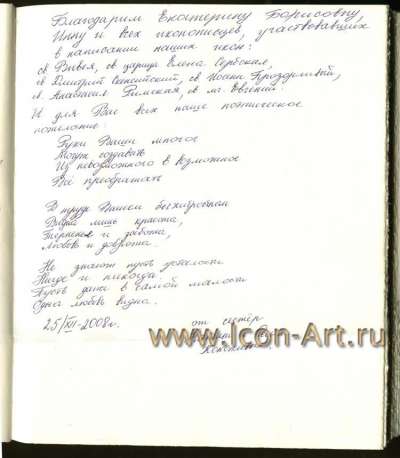 Благодарим Екатерину Борисовну,
Инну и всех иконописцев, участвовавших
в написании наших икон:
св. Вивея, св. царица Елена Сербская,
св. Дмитрий Скепсинский, св. Иоанн Прозорливый,
св. Анастасия Римская, св. м. Евгений.
И для Вас всех наше поэтическое
пожелание:
Руки Ваши многое
Могут создавать
Из невозможного в возможное
Всё преображать
В труде Вашем бесхитростном
Видна лишь красота,
Терпение и забота,
Любовь и доброта.
Не знают пусть усталости
Нигде и никогда.
Пусть даже в самой малости
Одна любовь видна.
25/XII-2008г.
от сестёр
www.Icon-Art.ru